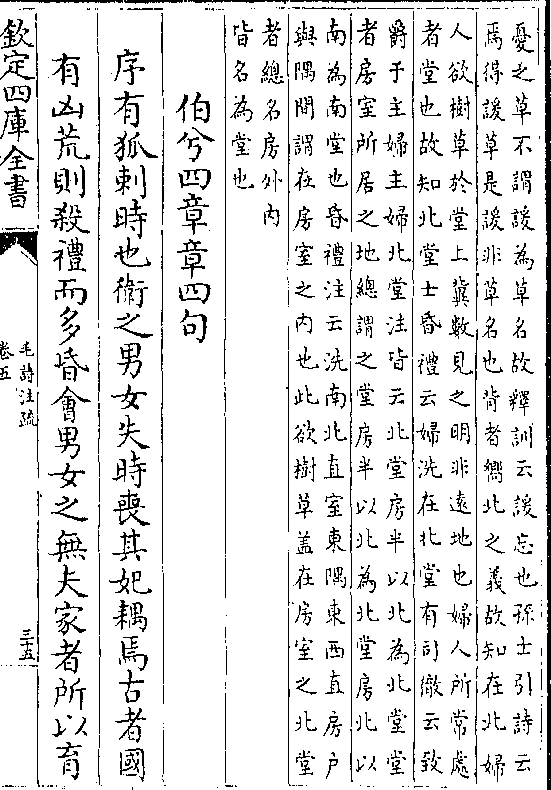 憂之草不謂諼為草名故釋訓云諼忘也孫士引詩云
焉得諼草是諼非草名也背者嚮北之義故知在北婦
人欲樹草於堂上冀數見之明非遠地也婦人所常處
者堂也故知北堂士昏禮云婦洗在北堂有司徹云致
爵于主婦主婦北堂注皆云北堂房半以北為北堂堂
者房室所居之地總謂之堂房半以北為北堂房北以
南為南堂也昏禮注云洗南北直室東隅東西直房户
與隅間謂在房室之内也此欲樹草蓋在房室之北堂
者總名房外内
皆名為堂也
伯兮四章章四句
序有狐刺時也衛之男女失時喪其妃耦焉古者國
有凶荒則殺禮而多昏會男女之無夫家者所以育
欽定四庫全書
毛詩注疏
卷五
三十五